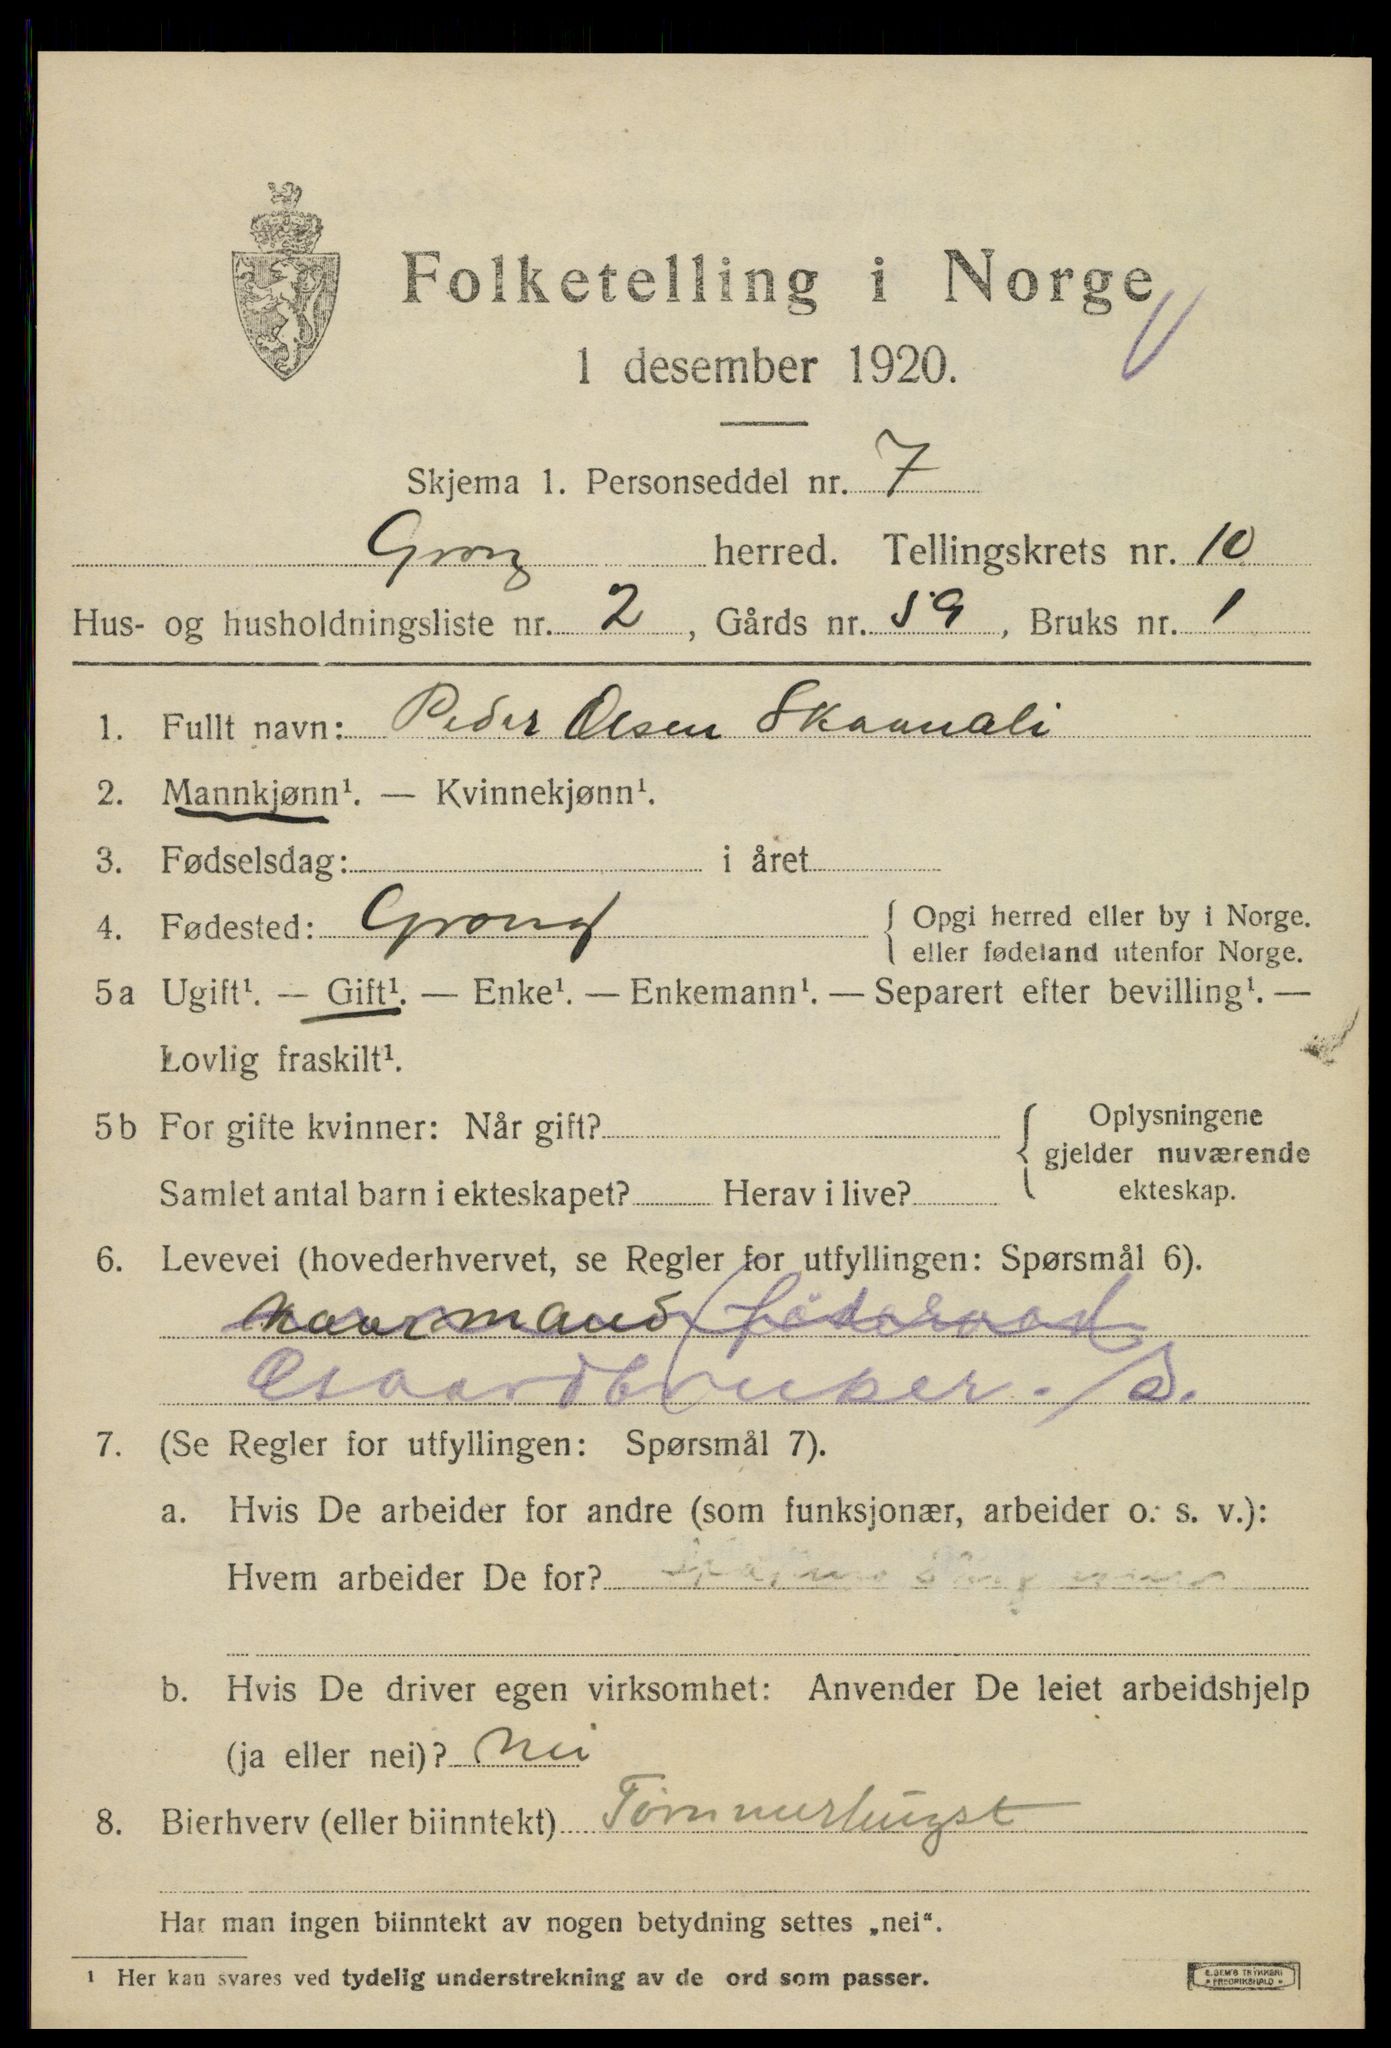 Folketelling i Norge
1 desember 1920.
Skjema 1. Personseddel nr. 7
Grong herred. Tellingskrets nr. 10
Hus- og husholdningsliste nr. 2, Gårds nr. 59, Bruks nr. 1
1. Fullt navn: Peder Olsen Skaanali
2. Mannkjønn¹. — Kvinnekjønn¹.
3. Fødselsdag: i året
4. Fødested: Grong { Opgi herred eller by i Norge.
eller fødeland utenfor Norge.
5a Ugift¹. — Gift¹. — Enke¹. — Enkemann¹. — Separert efter bevilling¹. —
Lovlig fraskilt¹.
5b For gifte kvinner: Når gift? { Oplysningene
gjelder nuværende
Samlet antal barn i ekteskapet? Herav i live? ekteskap.
6. Levevei (hovederhvervet, se Regler for utfyllingen: Spørsmål 6).
Kaarmand föderaad
Gaardbruker. /S.
7. (Se Regler for utfyllingen: Spørsmål 7).
a. Hvis De arbeider for andre (som funksjonær, arbeider o. s. v.):
Hvem arbeider De for?
b. Hvis De driver egen virksomhet: Anvender De leiet arbeidshjelp
(ja eller nei)? Nei
8. Bierhverv (eller biinntekt) Tömmerhugst
Har man ingen biinntekt av nogen betydning settes „nei“.
¹ Her kan svares ved tydelig understrekning av de ord som passer.
E. SEM'S TRYKKERI
FREDRIKSHALD